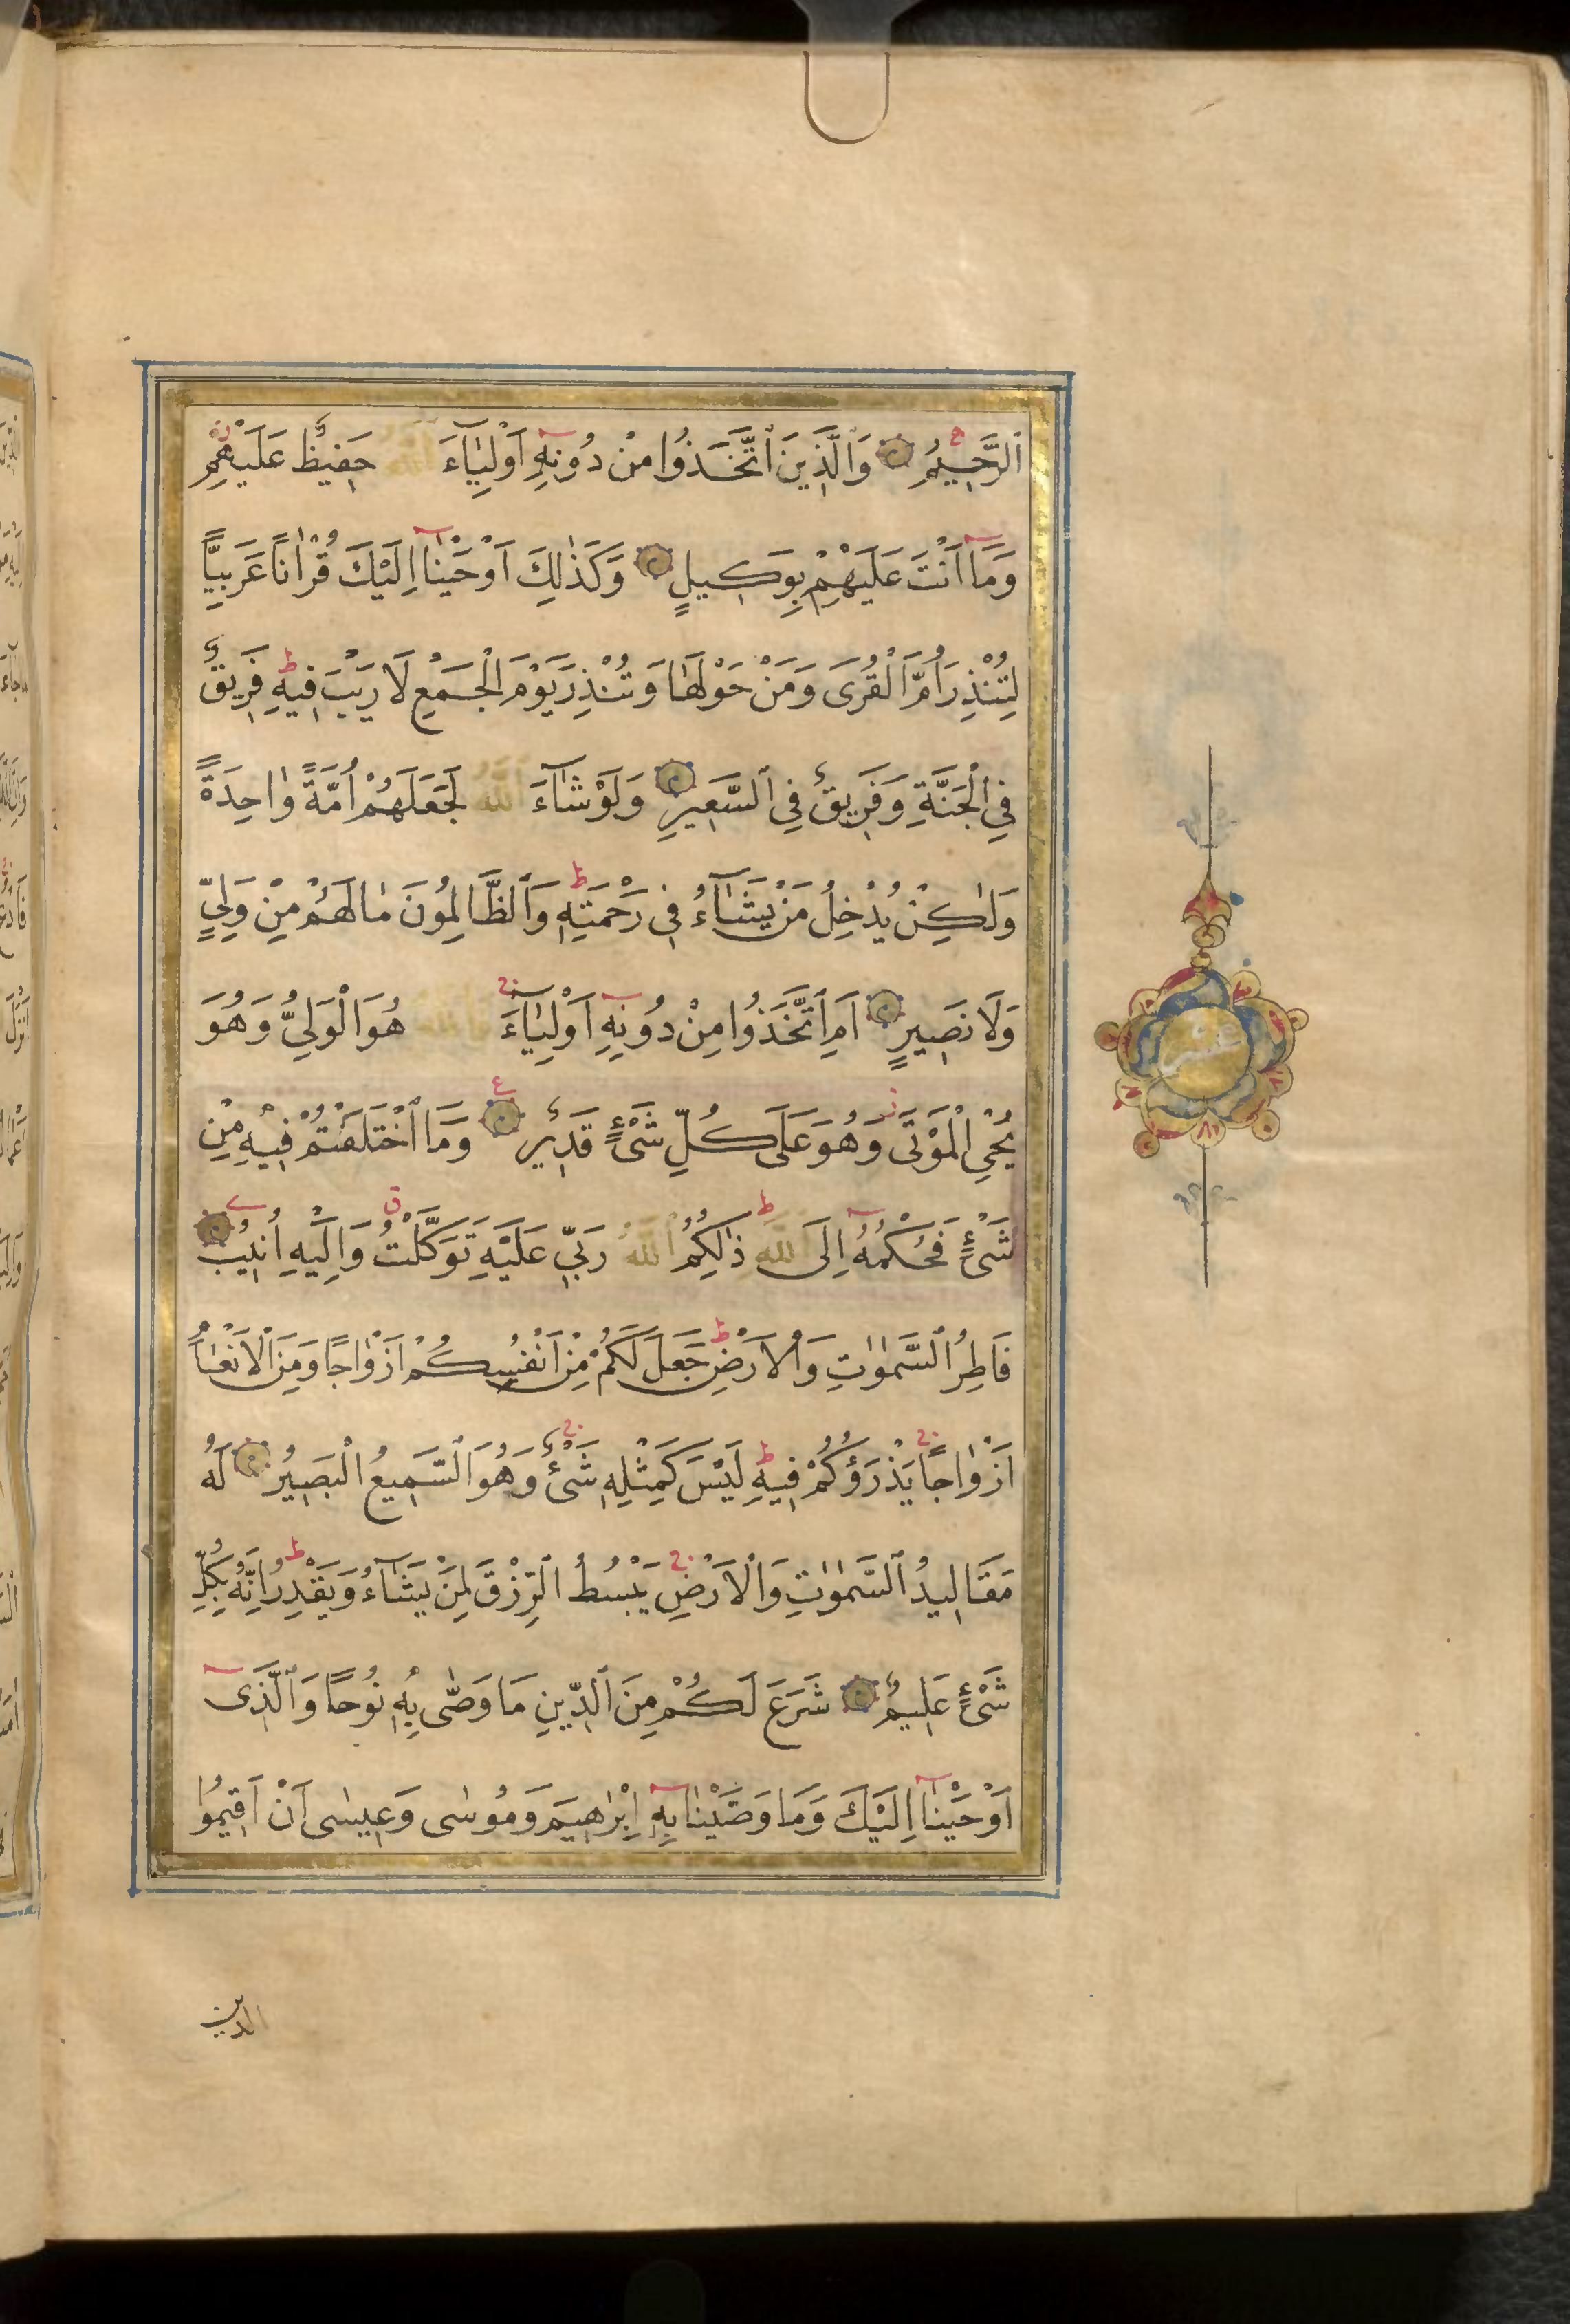 ٱلرَّحِيمُ وَٱلَّذِينَ ٱتَّخَذُوا مِنْ دُونِهِ اَوْلِيَآءَ ٱللهُ حَفِيظٌ عَلَيْهِمْ
وَمَآ اَنْتَ عَلَيْهِمْ بِوَكِيلٍ وَكَذٰلِكَ اَوْحَيْنَآ اِلَيْكَ قُرْاٰناً عَرَبِيًّا
لِتُنْذِرَ اُمَّ الْقُرَى وَمَنْ حَوْلَهَا وَتُنْذِرَ يَوْمَ الْجَمْعِ لَا رَيْبَ فِيهِ فَرِيقٌ
فِي الْجَنَّةِ وَفَرِيقٌ فِي ٱلسَّعِيرِ وَلَوْ شَآءَ ٱللهُ لَجَعَلَهُمْ اُمَّةً وٰاحِدَةً
وَلٰكِنْ يُدْخِلُ مَنْ يَشَآءُ فِي رَحْمَتِهِ وَٱلظَّالِمُونَ مٰا لَهُمْ مِنْ وَلِيٍّ
وَلَا نَصِيرٍ اَمِ ٱتَّخَذُوا مِنْ دُونِهِ اَوْلِيَآءَ فَاللهُ هُوَ الْوَلِيُّ وَهُوَ
يُحْيِ الْمَوْتَى وَهُوَ عَلَى كُلِّ شَىْءٍ قَدِيرٌ وَمَا ٱخْتَلَفْتُمْ فِيهِ مِنْ
شَىْءٍ فَحُكْمُهُ اِلَى ٱللهِ ذٰلِكُمُ ٱللهُ رَبِّي عَلَيْهِ تَوَكَّلْتُ وَاِلَيْهِ اُنِيبُ
فَاطِرُ ٱلسَّمٰوٰتِ وَالْاَرْضِ جَعَلَ لَكُمْ مِنْ اَنْفُسِكُمْ اَزْوٰاجًا وَمِنَ الْاَنْعٰامِ
اَزْوٰاجًا يَذْرَؤُكُمْ فِيهِ لَيْسَ كَمِثْلِهِ شَىْءٌ وَهُوَ ٱلسَّمِيعُ الْبَصِيرُ لَهُ
مَقَالِيدُ ٱلسَّمٰوٰتِ وَالْاَرْضِ يَبْسُطُ ٱلرِّزْقَ لِمَنْ يَشَآءُ وَيَقْدِرُ اِنَّهُ بِكُلِّ
شَىْءٍ عَلِيمٌ شَرَعَ لَكُمْ مِنَ ٱلدِّينِ مَا وَصّٰى بِهِ نُوحًا وَٱلَّذِى
اَوْحَيْنَآ اِلَيْكَ وَمَا وَصَّيْنٰا بِهِ اِبْرٰهِيمَ وَمُوسٰى وَعِيسٰى اَنْ اَقِيمُوا
الدين